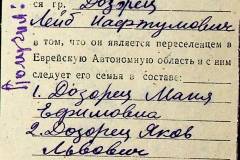 ся гр. Дозорец
Лейб Нафтулмович
в том, что он является переселенцем в
Еврейскую Автономную область и с ним
следует его семья в составе:
1. Дозорец Маня
Ефимовна
2. Дозорец Яков
Львович